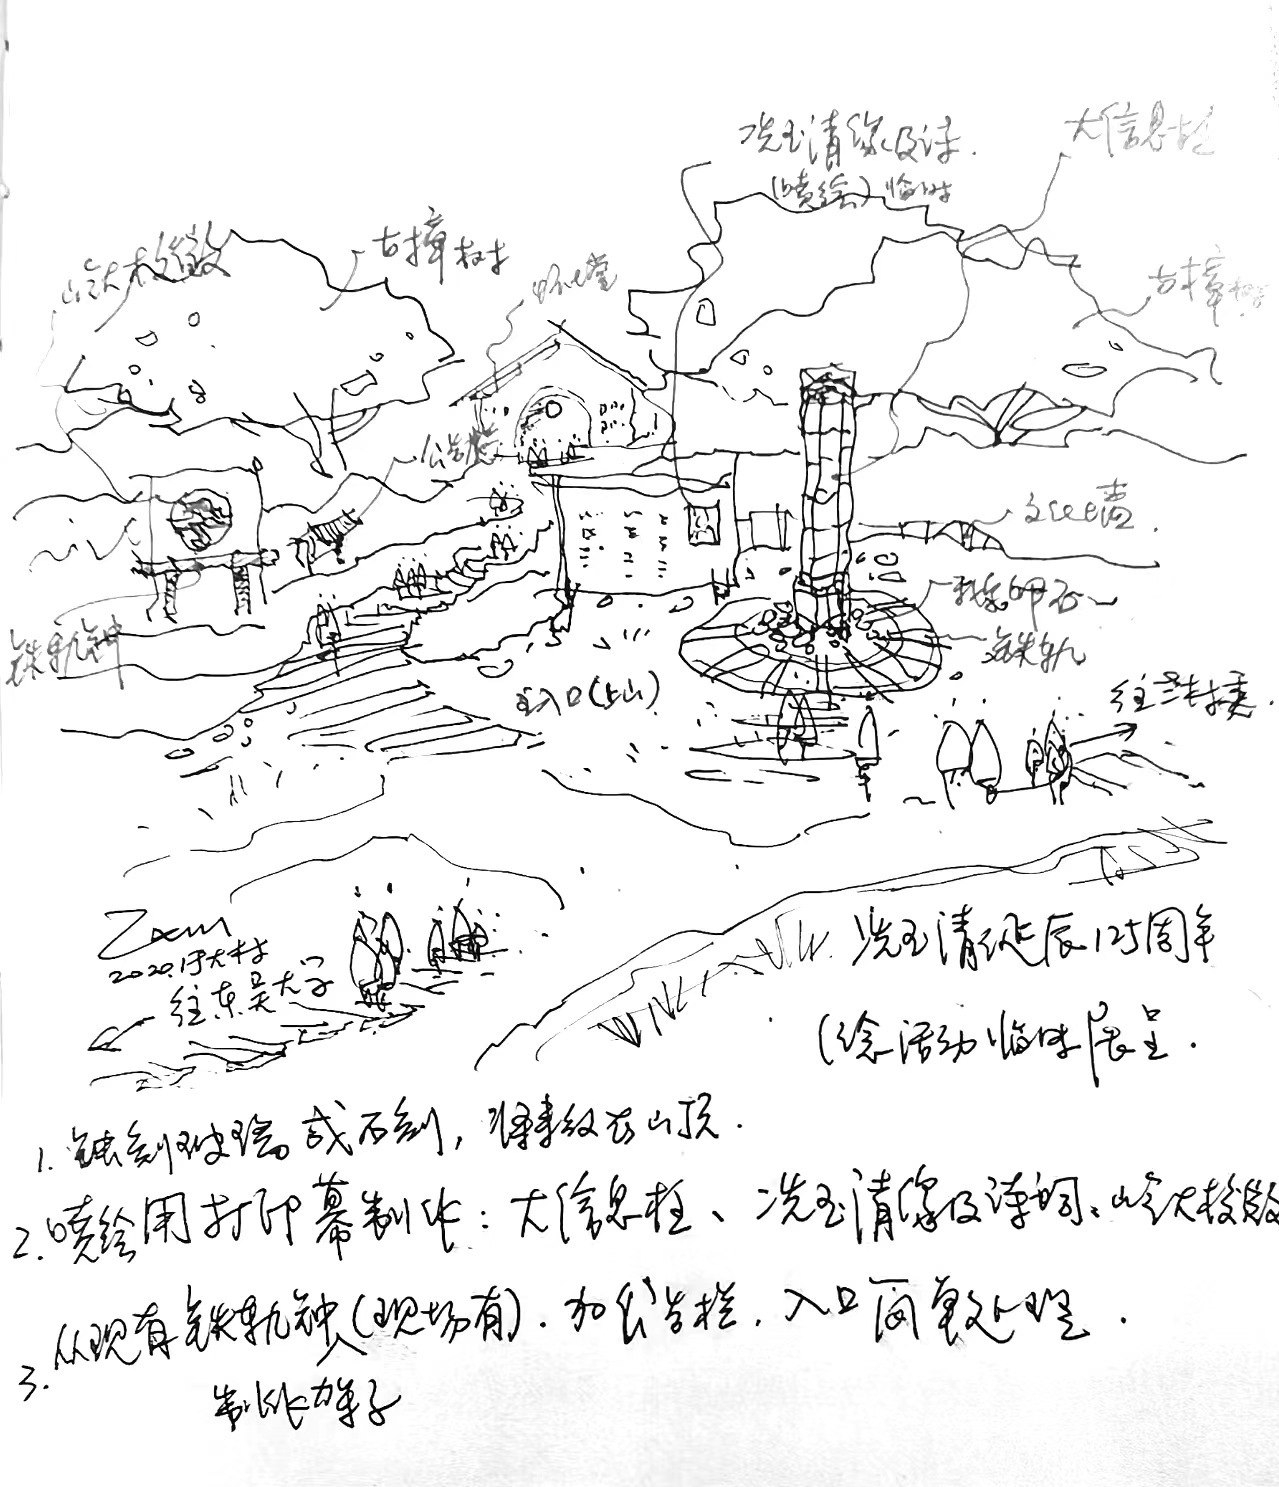 冼玉清像及诗.
(喷绘)临时
大信息柱
岭大校徽
古樟树
怀士堂
古樟树
公告栏
文化墙
铁轨钟
铁轨
主入口(上山)
Zxm
2020.1于大村
往东吴大学
冼玉清诞辰125周年
(绘活动临时展呈.
1. 蚀刻玻璃或石刻,
山顶.
2. 喷绘用打印幕制作: 大信息柱、冼玉清像及诗词、岭大校徽
3. 从现有铁轨钟(现场有). 加公告栏. 入口简单处理.
制作架子